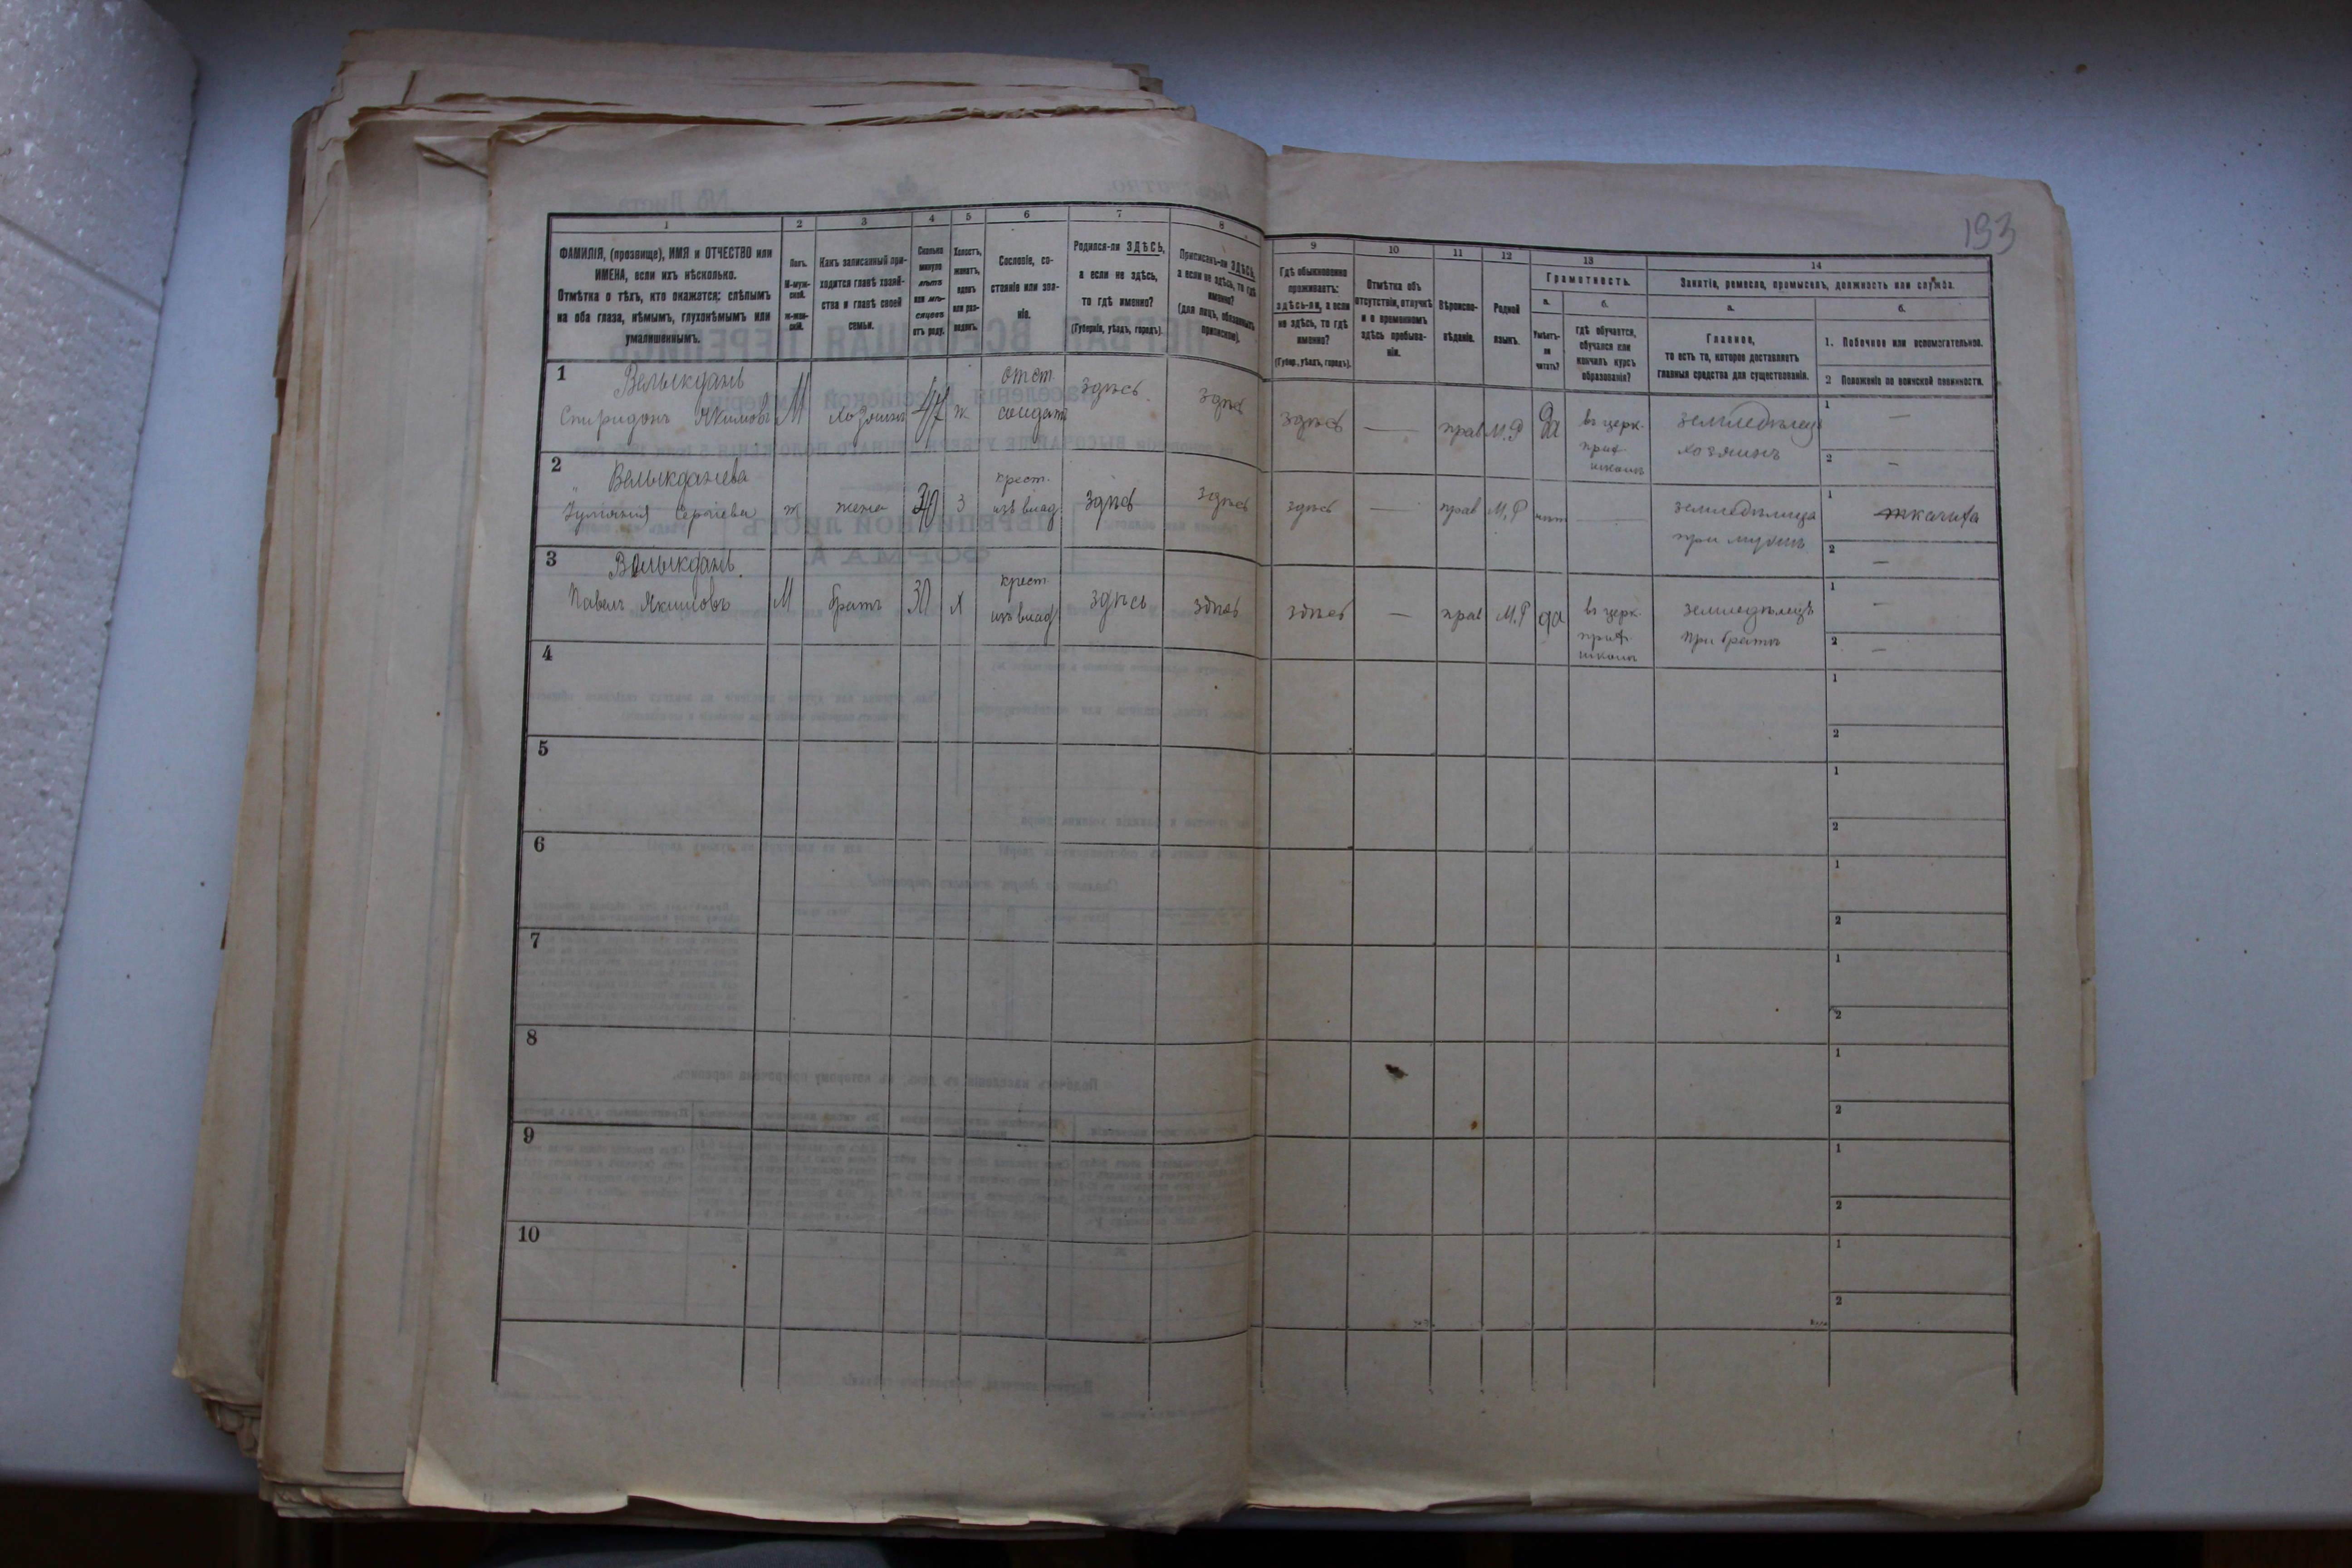 193
1
2
3
4
5
6
7
8
9
10
11
12
13
14
ФАМИЛІЯ, (прозвище), ИМЯ и ОТЧЕСТВО или
ИМЕНА, если ихъ нѣсколько.
Отмѣтка о тѣхъ, кто окажется: слѣпымъ
на оба глаза, нѣмымъ, глухонѣмымъ или
умалишеннымъ.
Полъ.
М-муж-
ской.
Ж-жен-
скій.
Какъ записанный при-
ходится главѣ хозяй-
ства и главѣ своей
семьи.
Сколько
минуло
лѣтъ
или мѣ-
сяцевъ
отъ роду.
Холостъ,
женатъ,
вдовъ
или раз-
веденъ.
Сословіе, со-
стояніе или зва-
ніе.
Родился-ли ЗДѢСЬ,
а если не здѣсь,
то гдѣ именно?
(Губернія, уѣздъ, городъ).
Приписанъ-ли ЗДѢСЬ,
а если не здѣсь, то гдѣ
именно?
(для лицъ, обязанныхъ
припискою).
Гдѣ обыкновенно
проживаетъ:
здѣсь-ли, а если
не здѣсь, то гдѣ
именно?
(Губер., уѣздъ, городъ).
Отмѣтка объ
отсутствіи, отлучкѣ
и о временномъ
здѣсь пребыва-
ніи.
Вѣроиспо-
вѣданіе.
Родной
языкъ.
Грамотность.
а.
б.
Умѣетъ-
ли
читать?
гдѣ обучается,
обучался или
кончилъ курсъ
образованія?
Занятіе, ремесло, промыселъ, должность или служба.
а.
б.
Главное,
то есть то, которое доставляетъ
главныя средства для существованія.
1. Побочное или вспомогательное.
2 Положеніе по воинской повинности.
1
Велыкдань
Спиридонъ Якимовъ М хозяинъ 47 ж
отст.
солдатъ
здѣсь здѣсь здѣсь — прав М.Р да
въ церк.
прих
школѣ
земледѣлецъ
хозяинъ
1 —
2 —
2
Велыкданева
Сергіева ж жена 40 З
крест.
изъ влад
здѣсь здѣсь здѣсь — прав М.Р нѣтъ —
земледѣлица
при мужѣ
1 ткачиха
2 —
3
Велыкдань
Павелъ Якимовъ М братъ 30 х
крест
изъ влад
здѣсь здѣсь здѣсь — прав М.Р да
въ церк.
прих.
школѣ
земледѣлецъ
при братѣ
1 —
2 —
4
1
2
5
1
2
6
1
2
7
1
2
8
1
2
9
1
2
10
1
2